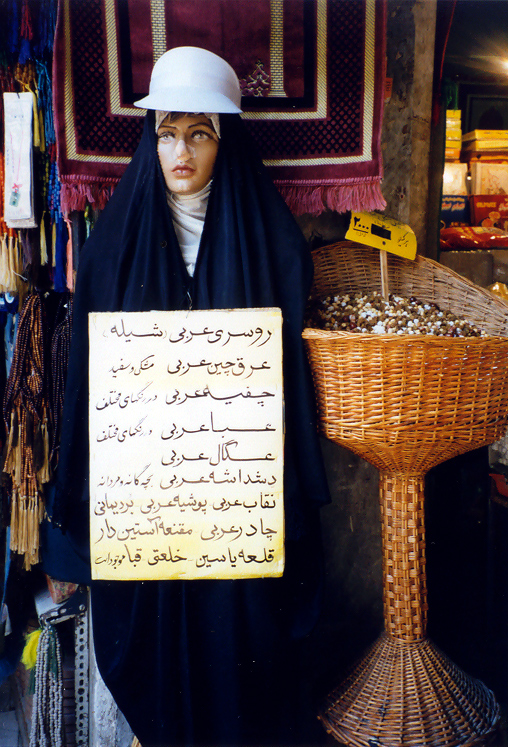 روسری عربی (شیله)
عرقچین عربی مشکی و سفید
چفیه عربی در رنگهای مختلف
عبا عربی در رنگهای مختلف
عگال عربی
دشداشه عربی بچه گانه و مردانه
نقاب عربی پوشیه عربی بُرد یمانی
چادر عربی مقنعه آستین دار
قلعه یاسین - خلعتی قبا موجود است
۲۰۰۰